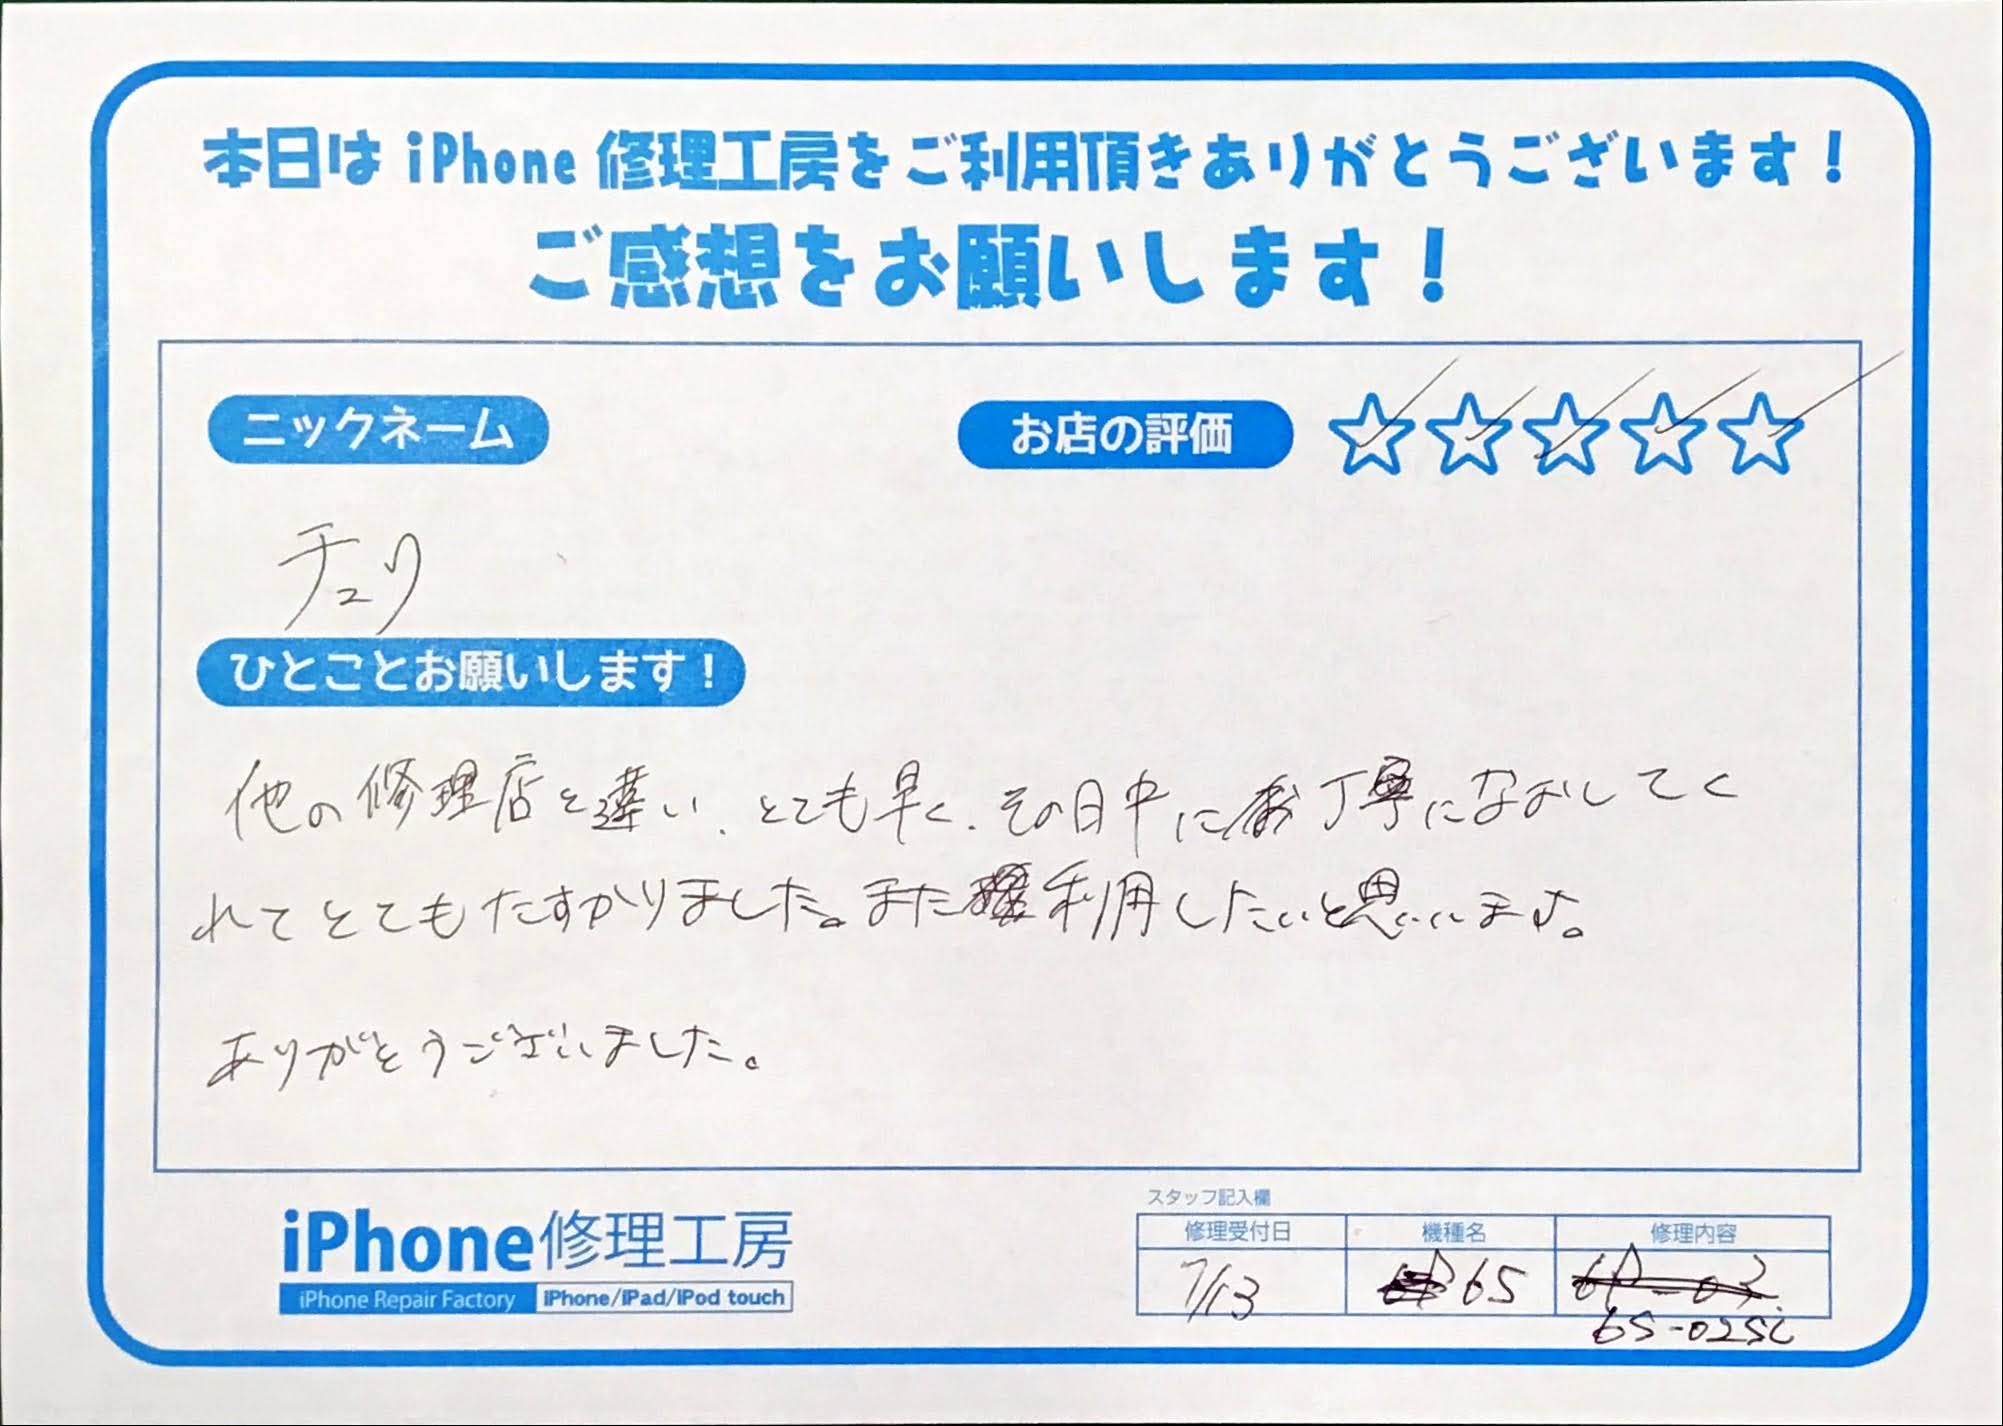 本日は iPhone 修理工房をご利用頂きありがとうございます!
ご感想をお願いします!
ニックネーム
お店の評価 ☆☆☆☆☆
チュリ
ひとことお願いします!
他の修理店と違い、とても早く、その日中に丁寧になおしてく
れてとてもたすかりました。また利用したいと思います。
ありがとうございました。
iPhone修理工房
iPhone Repair Factory iPhone/iPad/iPod touch
スタッフ記入欄
修理受付日 機種名 修理内容
7/13 6S
6S-02Si